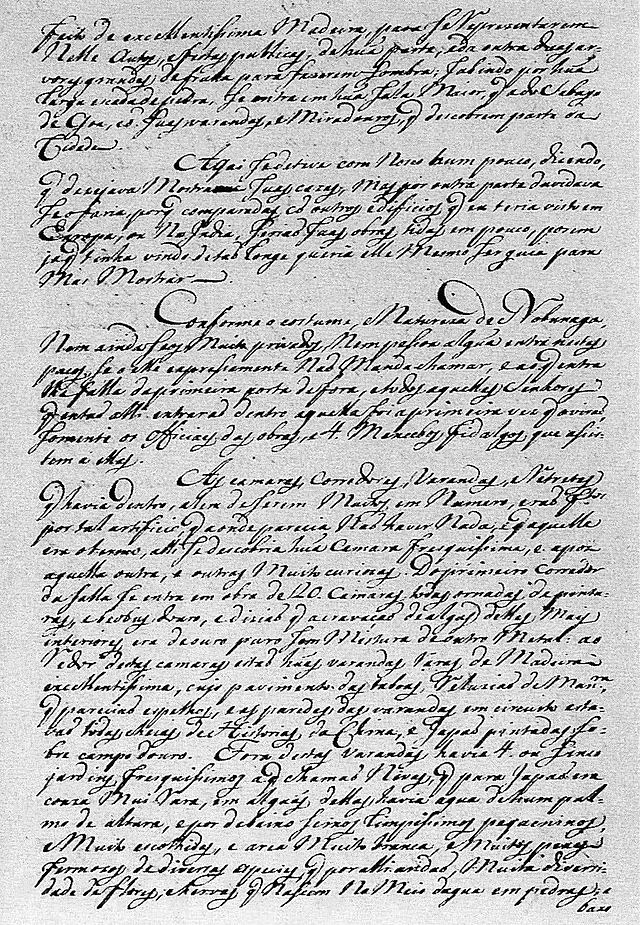 feito de excellentissima Madeira, para se representarem
Nelle Autos, e festas publicas, de hũa parte, e da outra duas ar-
vores grandes de frutta para fazerem sombra; sobindo por hũa
larga escada de pedra, se entra em hũa salla Maior, q̃ a do Sabayo
de Goa, có suas varandas, e Miradouros, q̃ descobrem parte da
Cidade
Aqui se detiva com Nosco hum pouco, dizendo,
q̃ desejava Mostrarme suas cazas, Mas por outra parte duvidava
se o faria porq̃ comparadas có outros edificios q̃ eu teria visto em
Europa, ou Na India, seriaõ suas obras tidas em pouco, porem
jaq̃ tinha vindo de taõ longe queria elle Mesmo ser guia para
Mas Mostrar
Conforme o costume, e Natureza de Nobunaga,
Nem ainda seos Muito privados, Nem pesoa algũa entra nestes
paços, se o elle expresamente Naõ Manda chamar, e ao q̃ entra
lhe falla da primeira porta de fora, e todos aquelles Senhores
q̃ entaõ alli entraraõ dentro aquella foi a primeira vez q̃ o viraõ
somente os Officiaes das obras, e 4. Mancebos fidalgos que asis-
tem a elles.
As camaras, Corredores, Varandas, e Retretes
q̃ havia dentro, alem de serem Muitos em Numero, eraõ feitos
por tal artificio, q̃ aonde parecia Naõ haver Nada, e q̃ aquelle
era o termo, alli se descobria hũa Camara fresquissima, e apoz
aquella outra, e outras Muito curiozas. Do primeiro Corredor
da salla se entra em obra de 20. Camaras, todas ornadas de pintu-
ras, e beobus d'ouro, e diziaõ q̃ a cravaçaõ de algũas dellas, Mais
interiores era de ouro puro sem Mistura de outro Metal: ao
Redor destas camaras estaõ hũas varandas razas de Madeira
excellentissima, cujo pavimento das taboas, reluziaõ de Manra
q̃ pareciaõ espelhos, e as paredes das varandas em circuito esta-
vaõ todas cheias de Historias da China, e Japaõ pintadas so-
bre campo d'ouro. Fora destas varandas havia 4. ou sinco
jardins, fresquissimos a q̃ chamaõ Nivas, q̃ para Japaõ era
couza Mui rara, em algũas dellas, havia agua de hum pal-
mo de altura, e por debaixo seixos limpissimos pequeninos,
e Muito escolhidos, e area Muito branca, e Muitos peixes
fermozos de diversas especies, q̃ por alli andaõ, Muita diversi-
dade de flores, e hervas q̃ Nascem No Meio dagua em pedras, e
baxo